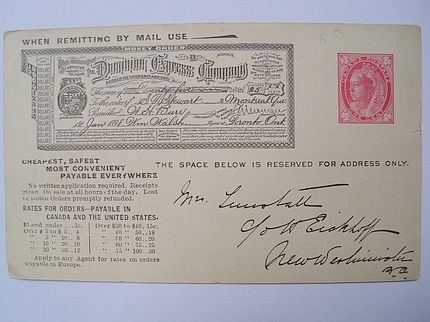 WHEN REMITTING BY MAIL USE
MONEY ORDER
Dominion Express Company
The sum of Twenty five Dollars $25 xx
To the order of S. Stewart Montreal Que
Remitter W. H. Burr
12 Jany 1898 Wm Walsh Toronto Ont
CANADA POSTAGE
CHEAPEST, SAFEST
MOST CONVENIENT
PAYABLE EVERYWHERE
THE SPACE BELOW IS RESERVED FOR ADDRESS ONLY.
No written application required. Receipts
given. On sale at all hours of the day. Lost
or stolen Orders promptly refunded.
RATES FOR ORDERS—PAYABLE IN
CANADA AND THE UNITED STATES.
$5 and under....3c. Over $30 to $40, 15c.
Over $ 5 to $ 10, 6 " 40 " 50..18
" 10 " 20..10 " 50 " 60..20
" 20 " 30..12 " 60 " 75..25
" 75 " 100..30
Apply to any Agent for rates on orders
payable in Europe.
Mr. Tunstall
c/o W Eickhoff
New Westminster
B.C.